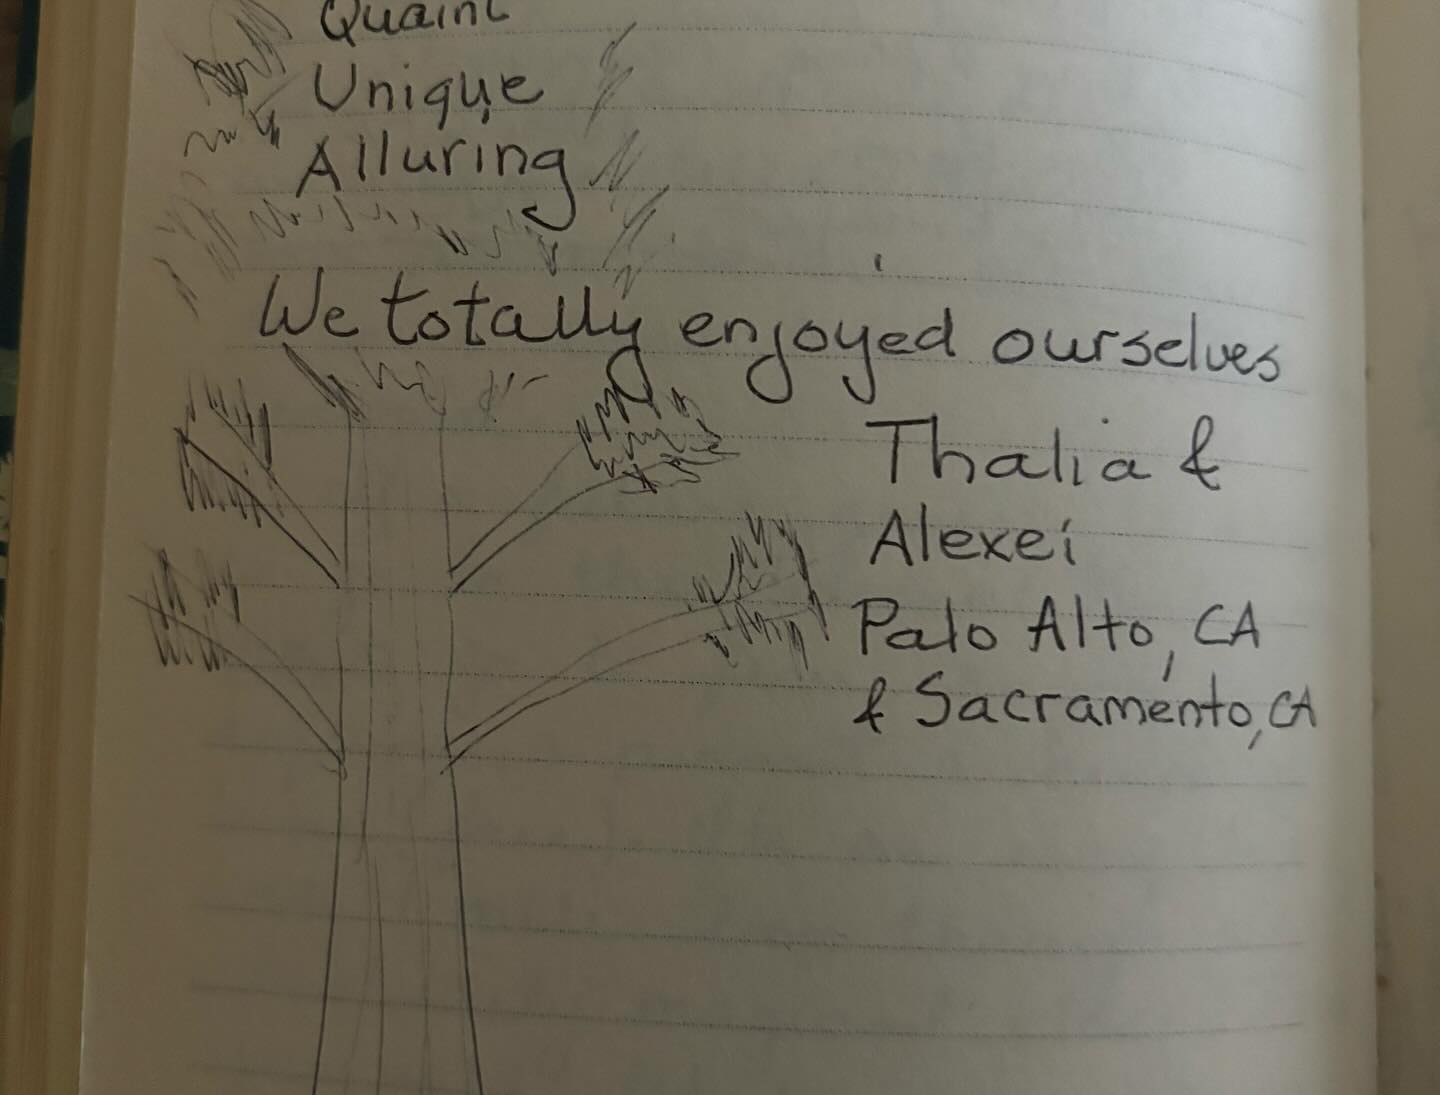 Quaint
Unique
Alluring
We totally enjoyed ourselves
Thalia &
Alexei
Palo Alto, CA
& Sacramento, CA